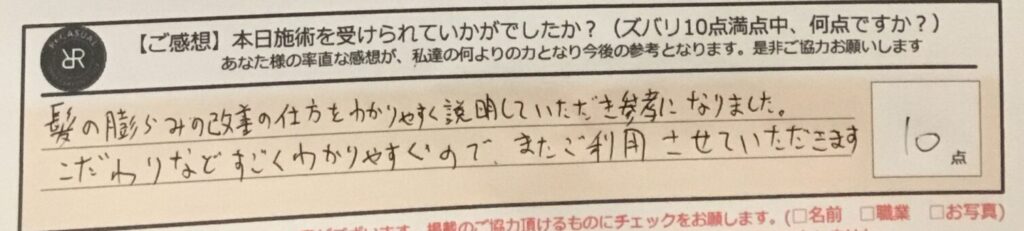 RECASUAL
RR
【ご感想】本日施術を受けられていかがでしたか？（ズバリ10点満点中、何点ですか？）
あなた様の率直な感想が、私達の何よりの力となり今後の参考となります。是非ご協力お願いします
髪の膨らみの改善の仕方をわかりやすく説明していただき参考になりました。
こだわりなどすごくわかりやすくので、またご利用させていただきます
10点
掲載のご協力頂けるものにチェックをお願します。(□名前 □職業 □お写真)